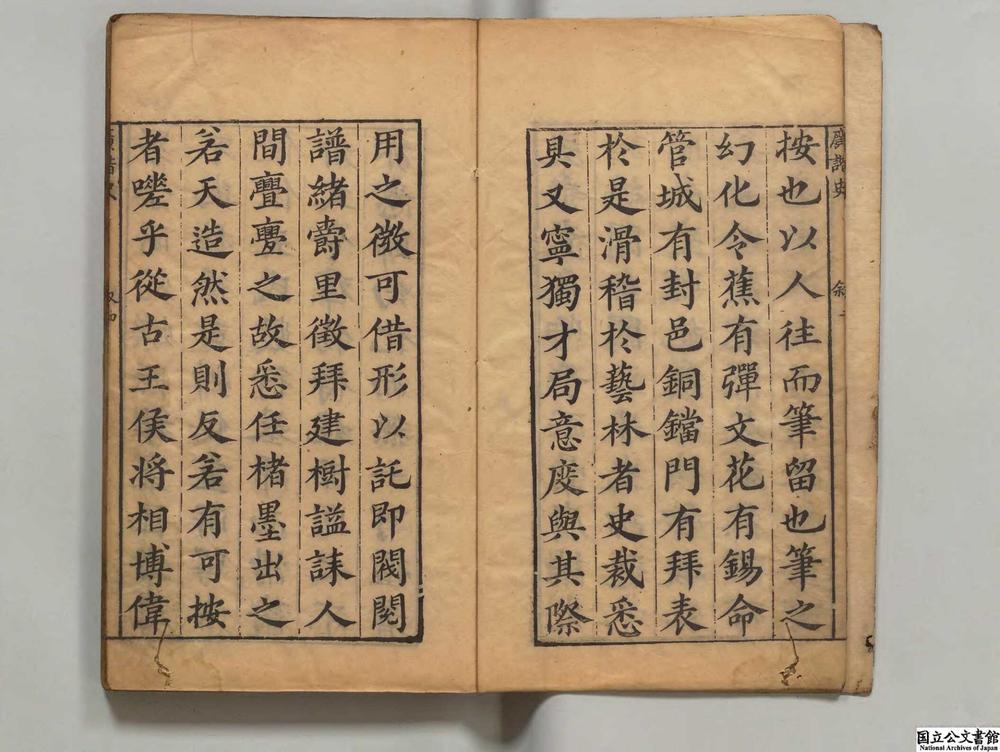 廣諧史
叙
按也以人往而筆留也筆之
幻化令蕉有彈文花有錫命
管城有封邑銅鐺門有拜表
於是滑稽於藝林者史裁悉
具又寧獨才局意度與其際
用之微可借形以託即閥閱
譜緒爵里徵拜建樹謚誄人
間亹亹之故悉任楮墨出之
若天造然是則反若有可按
者嗟乎從古王侯将相博偉
国立公文書館
National Archives of Japan